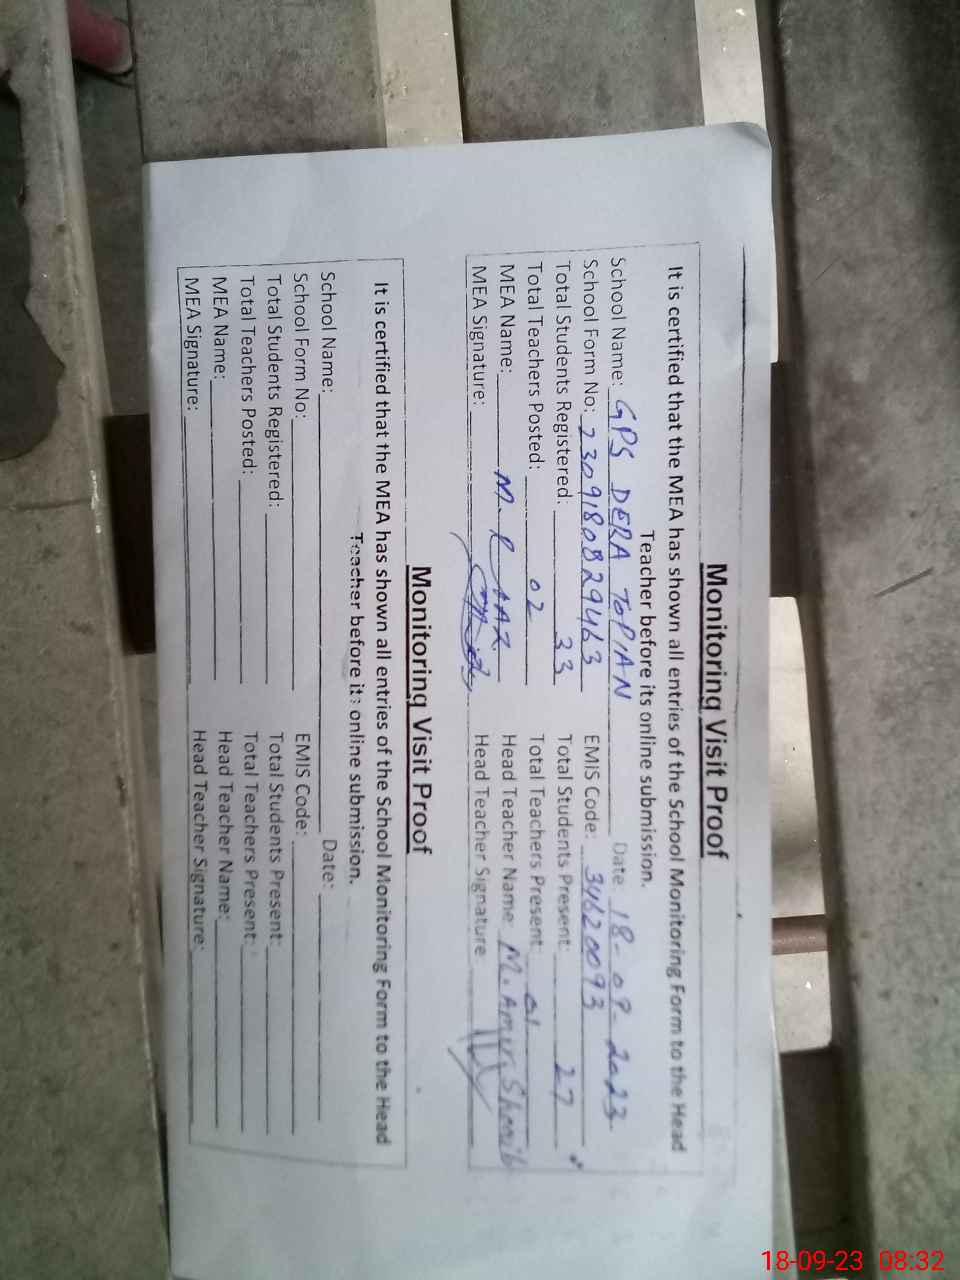 Monitoring Visit Proof
It is certified that the MEA has shown all entries of the School Monitoring Form to the Head
Teacher before its online submission.
School Name: GPS DERA TOPIAN Date 18-09-2023
School Form No: 2309180829463 EMIS Code: 34620093
Total Students Registered: 33 Total Students Present: 27
Total Teachers Posted: 02 Total Teachers Present: 01
MEA Name: M. RIAZ Head Teacher Name: M. Amir Shoaib
MEA Signature: Head Teacher Signature
Monitoring Visit Proof
It is certified that the MEA has shown all entries of the School Monitoring Form to the Head
Teacher before its online submission.
School Name: Date:
School Form No: EMIS Code:
Total Students Registered: Total Students Present:
Total Teachers Posted: Total Teachers Present:
MEA Name: Head Teacher Name:
MEA Signature: Head Teacher Signature:
18-09-23 08:32